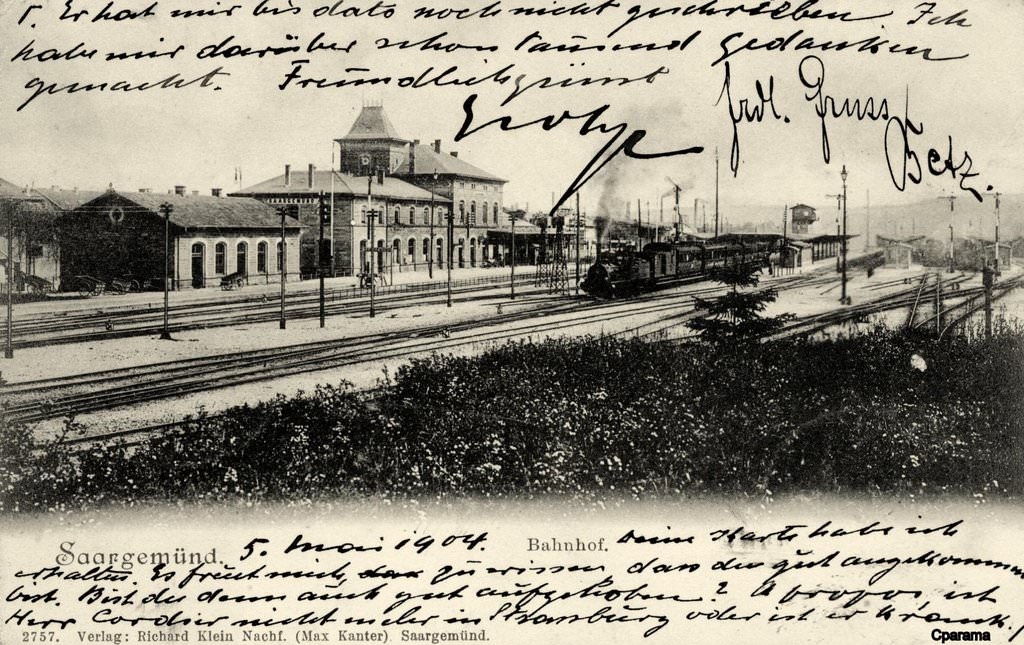 r. Er hat mir bis dato noch nicht geschrieben. Ich
habe mir darüber schon tausend Gedanken
gemacht. Freundlich grüsst
frdl. Gruss
Betz.
Saargemünd. 5. Mai 1904. Bahnhof. Deine Karte habe ich
erhalten. Es freut mich, zu wissen dass du gut angekommen
bist. Bist du denn auch gut aufgehoben? A propos ist
Herr Cordier nicht mehr in Strassburg oder ist er krank,
2757. Verlag: Richard Klein Nachf. (Max Kanter) Saargemünd.
Cparama